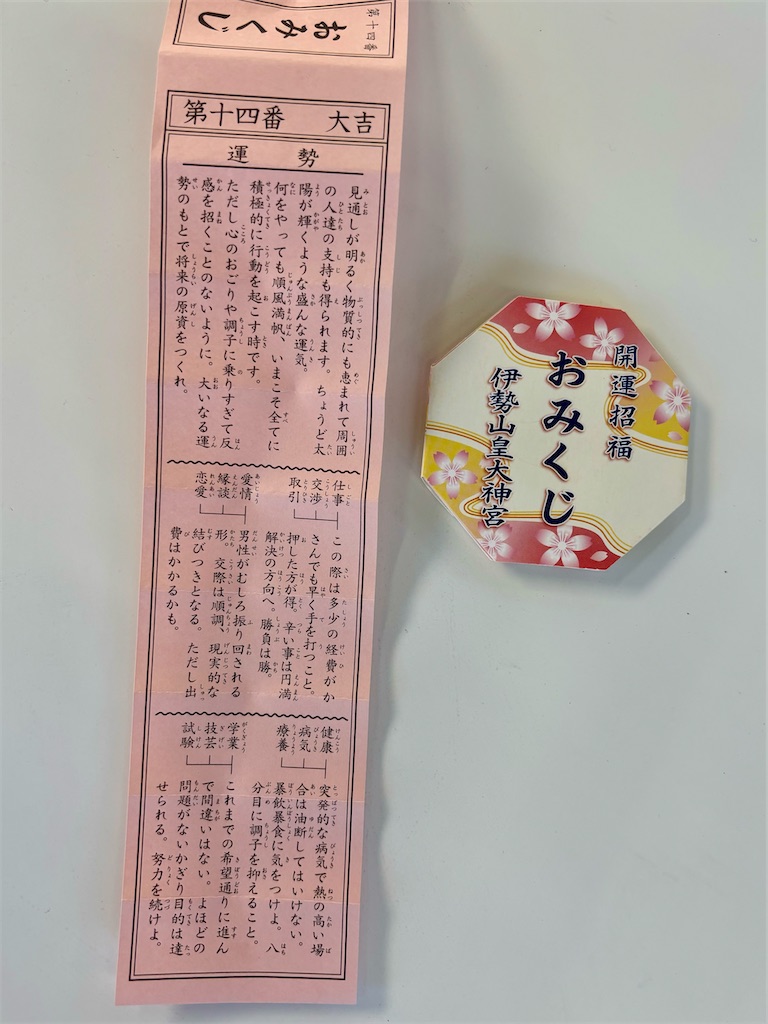 第十四番
おみくじ
第十四番 大吉
運勢
見通しが明るく物質的にも恵まれて周囲
の人達の支持も得られます。ちょうど太
陽が輝くような盛んな運気。
何をやっても順風満帆、いまこそ全てに
積極的に行動を起こす時です。
ただし心のおごりや調子に乗りすぎて反
感を招くことのないように。大いなる運
勢のもとで将来の原資をつくれ。
仕事
交渉
取引
この際は多少の経費がか
さんでも早く手を打つこと。
押した方が得。辛い事は円満
解決の方向へ。勝負は勝。
愛情
縁談
恋愛
男性がむしろ振り回される
形。交際は順調、現実的な
結びつきとなる。ただし出
費はかかるかも。
健康
病気
療養
突発的な病気で熱の高い場
合は油断してはいけない。
暴飲暴食に気をつけよ。八
分目に調子を抑えること。
学業
技芸
試験
これまでの希望通りに進ん
で間違いはない。よほどの
問題がないかぎり目的は達
せられる。努力を続けよ。
開運招福
おみくじ
伊勢山皇大神宮